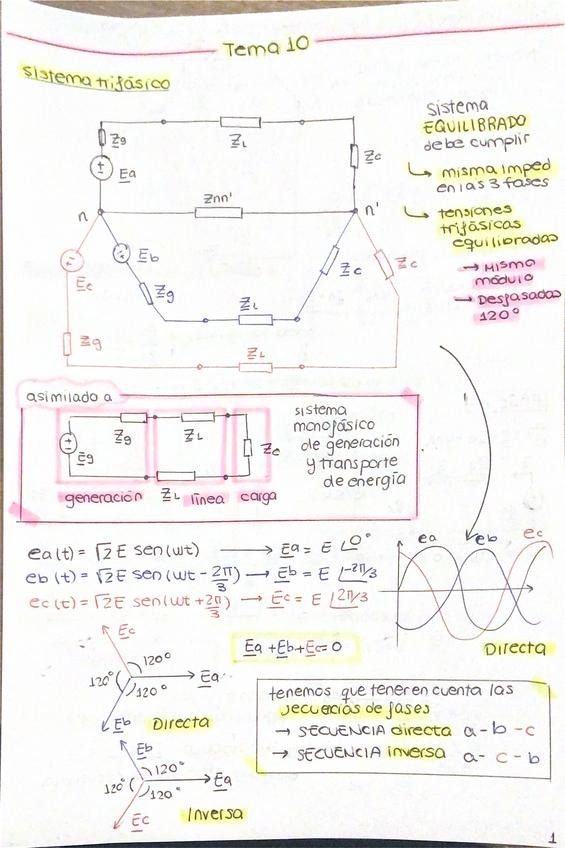 Tema 10
Sistema trifásico
Zg
ZL
Zc
Ea
Znn'
n
n'
Eb
Zg
ZL
Zc
Ec
Zg
ZL
Zc
Sistema
EQUILIBRADO
debe cumplir
misma imped
en las 3 fases
tensiones
trifásicas
equilibradas
→ Mismo
módulo
→ Desfasadas
120°
asimilado a
Eg
Zg
ZL
Zc
ZL
generación
línea
carga
sistema
monofásico
de generación
y transporte
de energía
ea(t) = √2 E sen(wt) → Ea = E ∠0°
eb(t) = √2 E sen(wt - 2π/3) → Eb = E ∠-2π/3
ec(t) = √2 E sen(wt + 2π/3) → Ec = E ∠2π/3
ea eb ec
Directa
Ec
120°
120°
120°
Ea
Eb
Directa
Ea + Eb + Ec = 0
Eb
120°
120°
120°
Ea
Ec
Inversa
tenemos que tener en cuenta las
secuencias de fases
→ SECUENCIA directa a - b - c
→ SECUENCIA inversa a - c - b
1